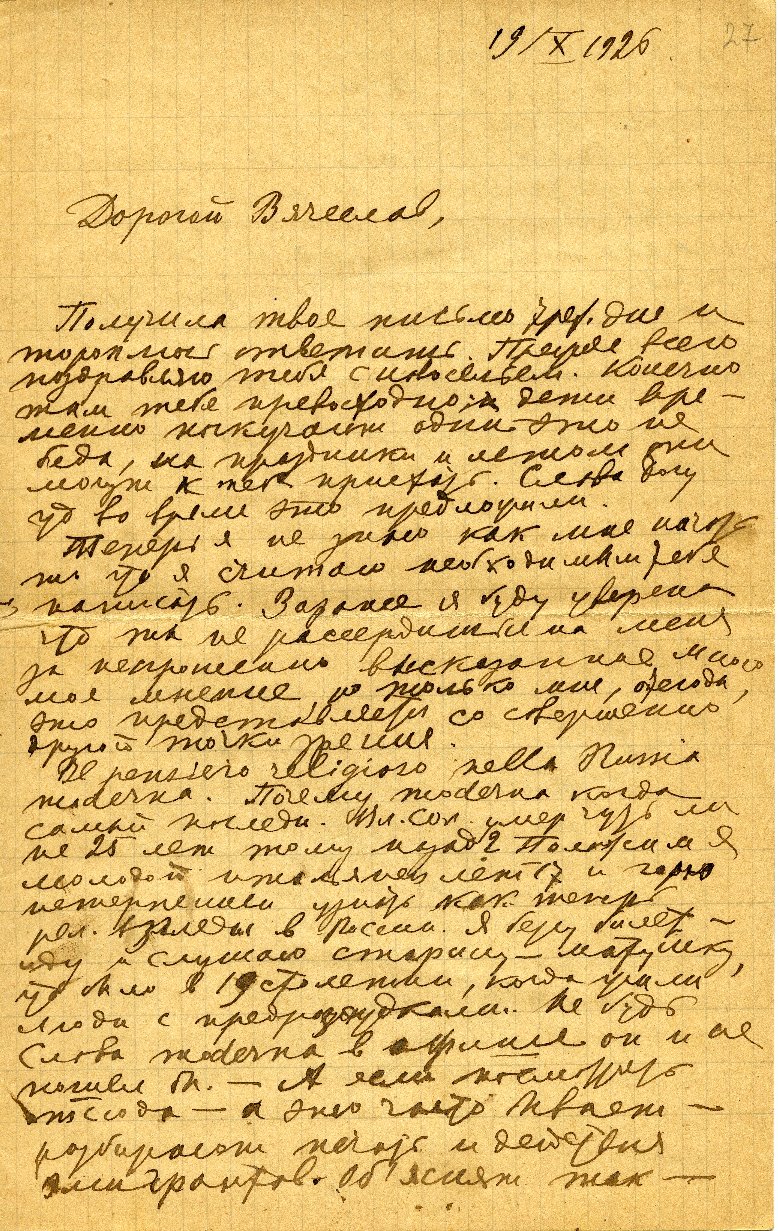 19/X 1926
27
Дорогой Вячеслав,
Получила твое письмо дне и
тороплюсь ответить. Прежде всего
поздравляю тебя с новосельем. Конечно
там тебе превосходно, а дети вре-
менно поскучают одни – это не
беда, на праздники и летом они
могут к тебе приехать. Слава богу
что во время это предложили.
Теперь я не знаю как мне начать
то что я считаю необходимым тебе
написать. Заранее я буду уверена
что ты не рассердишься на меня
за непрошенно высказанное мною
мое мнение но только мне, отсюда,
это представляется со совершенно
другой точки зрения.
Il pensiero religioso nella Russia
moderna. Почему moderna когда
самый последн. Вл. Сол. умер чуть ли
не 25 лет тому назад? Положим я
молодой итальянец лет 17 и горю
нетерпением узнать как теперь
рел. взгляды в России. Я беру билет –
иду и слушаю старину – матушку,
что было в 19 столетии, когда жили
люди с предрассудками. Не будь
слова moderna в афише он и не
пошел бы. – А если посмотреть
отсюда – а это часто бывает –
разбирают печать и действия
эмигрантов. Об'яснят так –